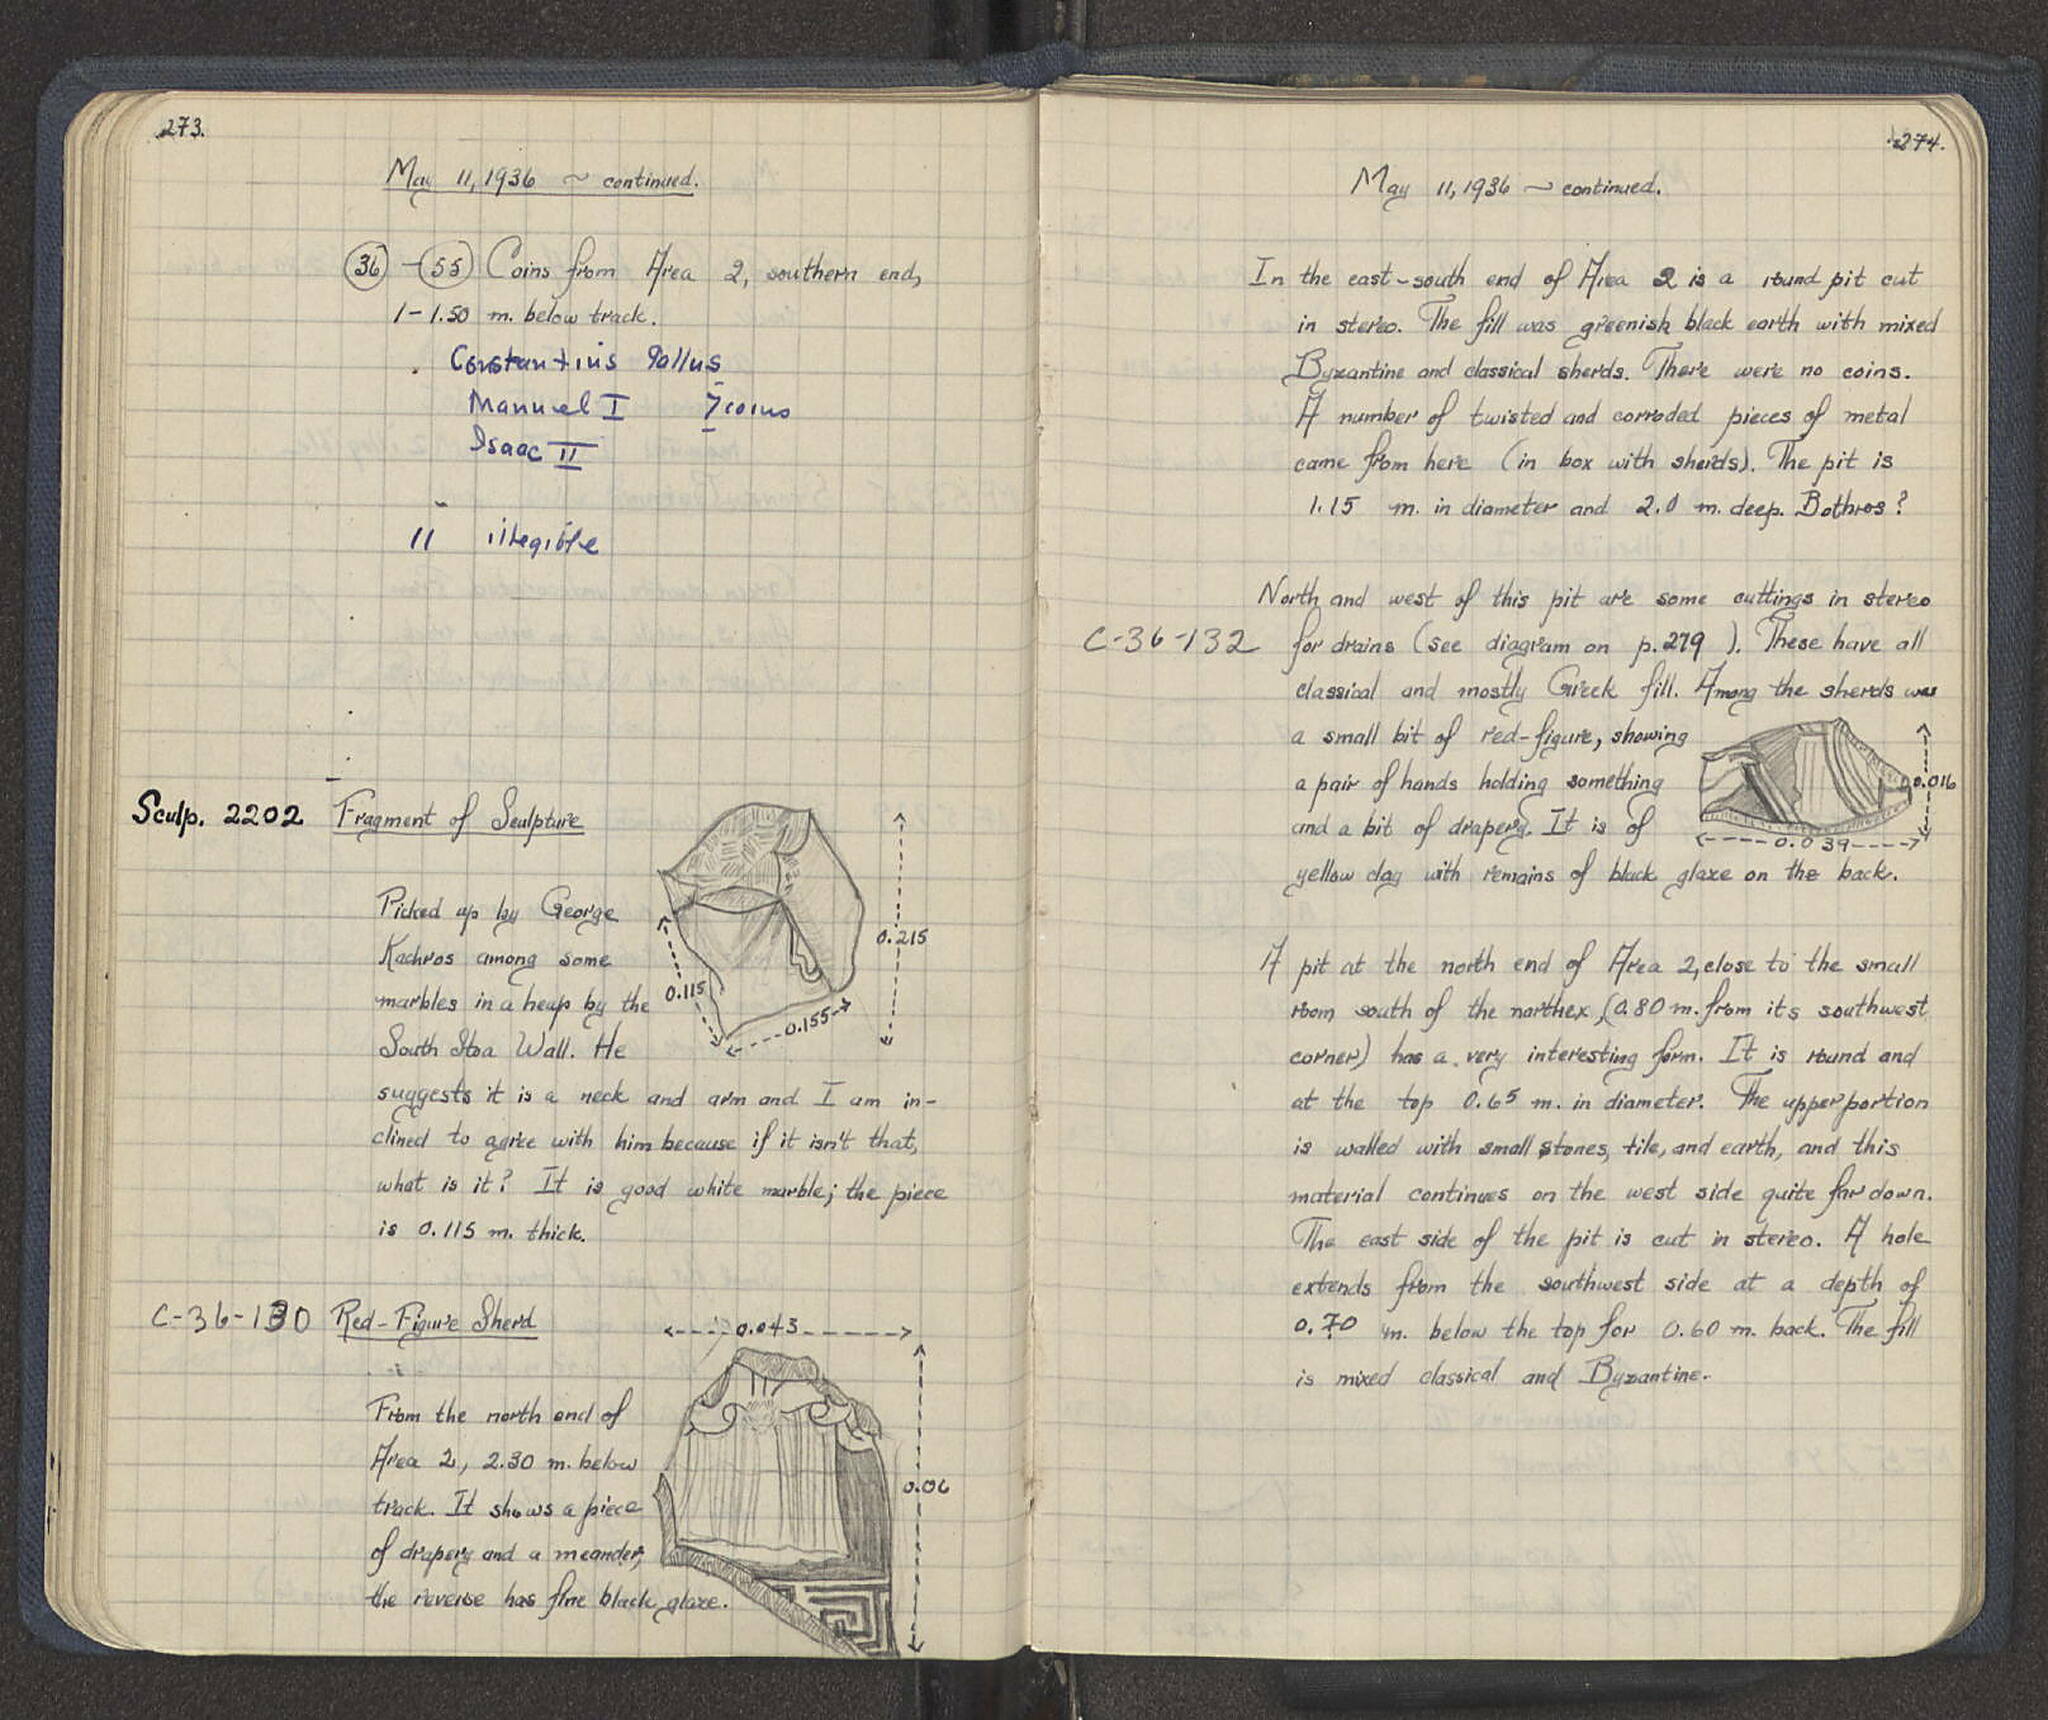 273.
May 11, 1936 ~ continued.
36 - 55 Coins from Area 2, southern end,
1-1.50 m. below track.
Constantius Gallus
Manuel I 7 coins
Isaac II
11 illegible
Sculp. 2202 Fragment of Sculpture
Picked up by George
Kachros among some
marbles in a heap by the
South Stoa Wall. He
suggests it is a neck and arm and I am in-
clined to agree with him because if it isn't that,
what is it? It is good white marble; the piece
is 0.115 m. thick.
0.215
0.115
0.155
C-36-130 Red-Figure Sherd
0.043
From the north end of
Area 2, 2.30 m. below
track. It shows a piece
of drapery and a meander,
the reverse has fine black glaze.
0.06
274.
May 11, 1936 ~ continued.
In the east-south end of Area 2 is a round pit cut
in stereo. The fill was greenish black earth with mixed
Byzantine and classical sherds. There were no coins.
A number of twisted and corroded pieces of metal
came from here (in box with sherds). The pit is
1.15 m. in diameter and 2.0 m. deep. Bothros?
North and west of this pit are some cuttings in stereo
C-36-132 for drains (see diagram on p. 279 ). These have all
classical and mostly Greek fill. Among the sherds was
a small bit of red-figure, showing
a pair of hands holding something
and a bit of drapery. It is of
yellow clay with remains of black glaze on the back.
0.016
0.039
A pit at the north end of Area 2, close to the small
room south of the narthex, (0.80 m. from its southwest
corner) has a very interesting form. It is round and
at the top 0.65 m. in diameter. The upper portion
is walled with small stones, tile, and earth, and this
material continues on the west side quite far down.
The east side of the pit is cut in stereo. A hole
extends from the southwest side at a depth of
0.70 m. below the top for 0.60 m. back. The fill
is mixed classical and Byzantine.